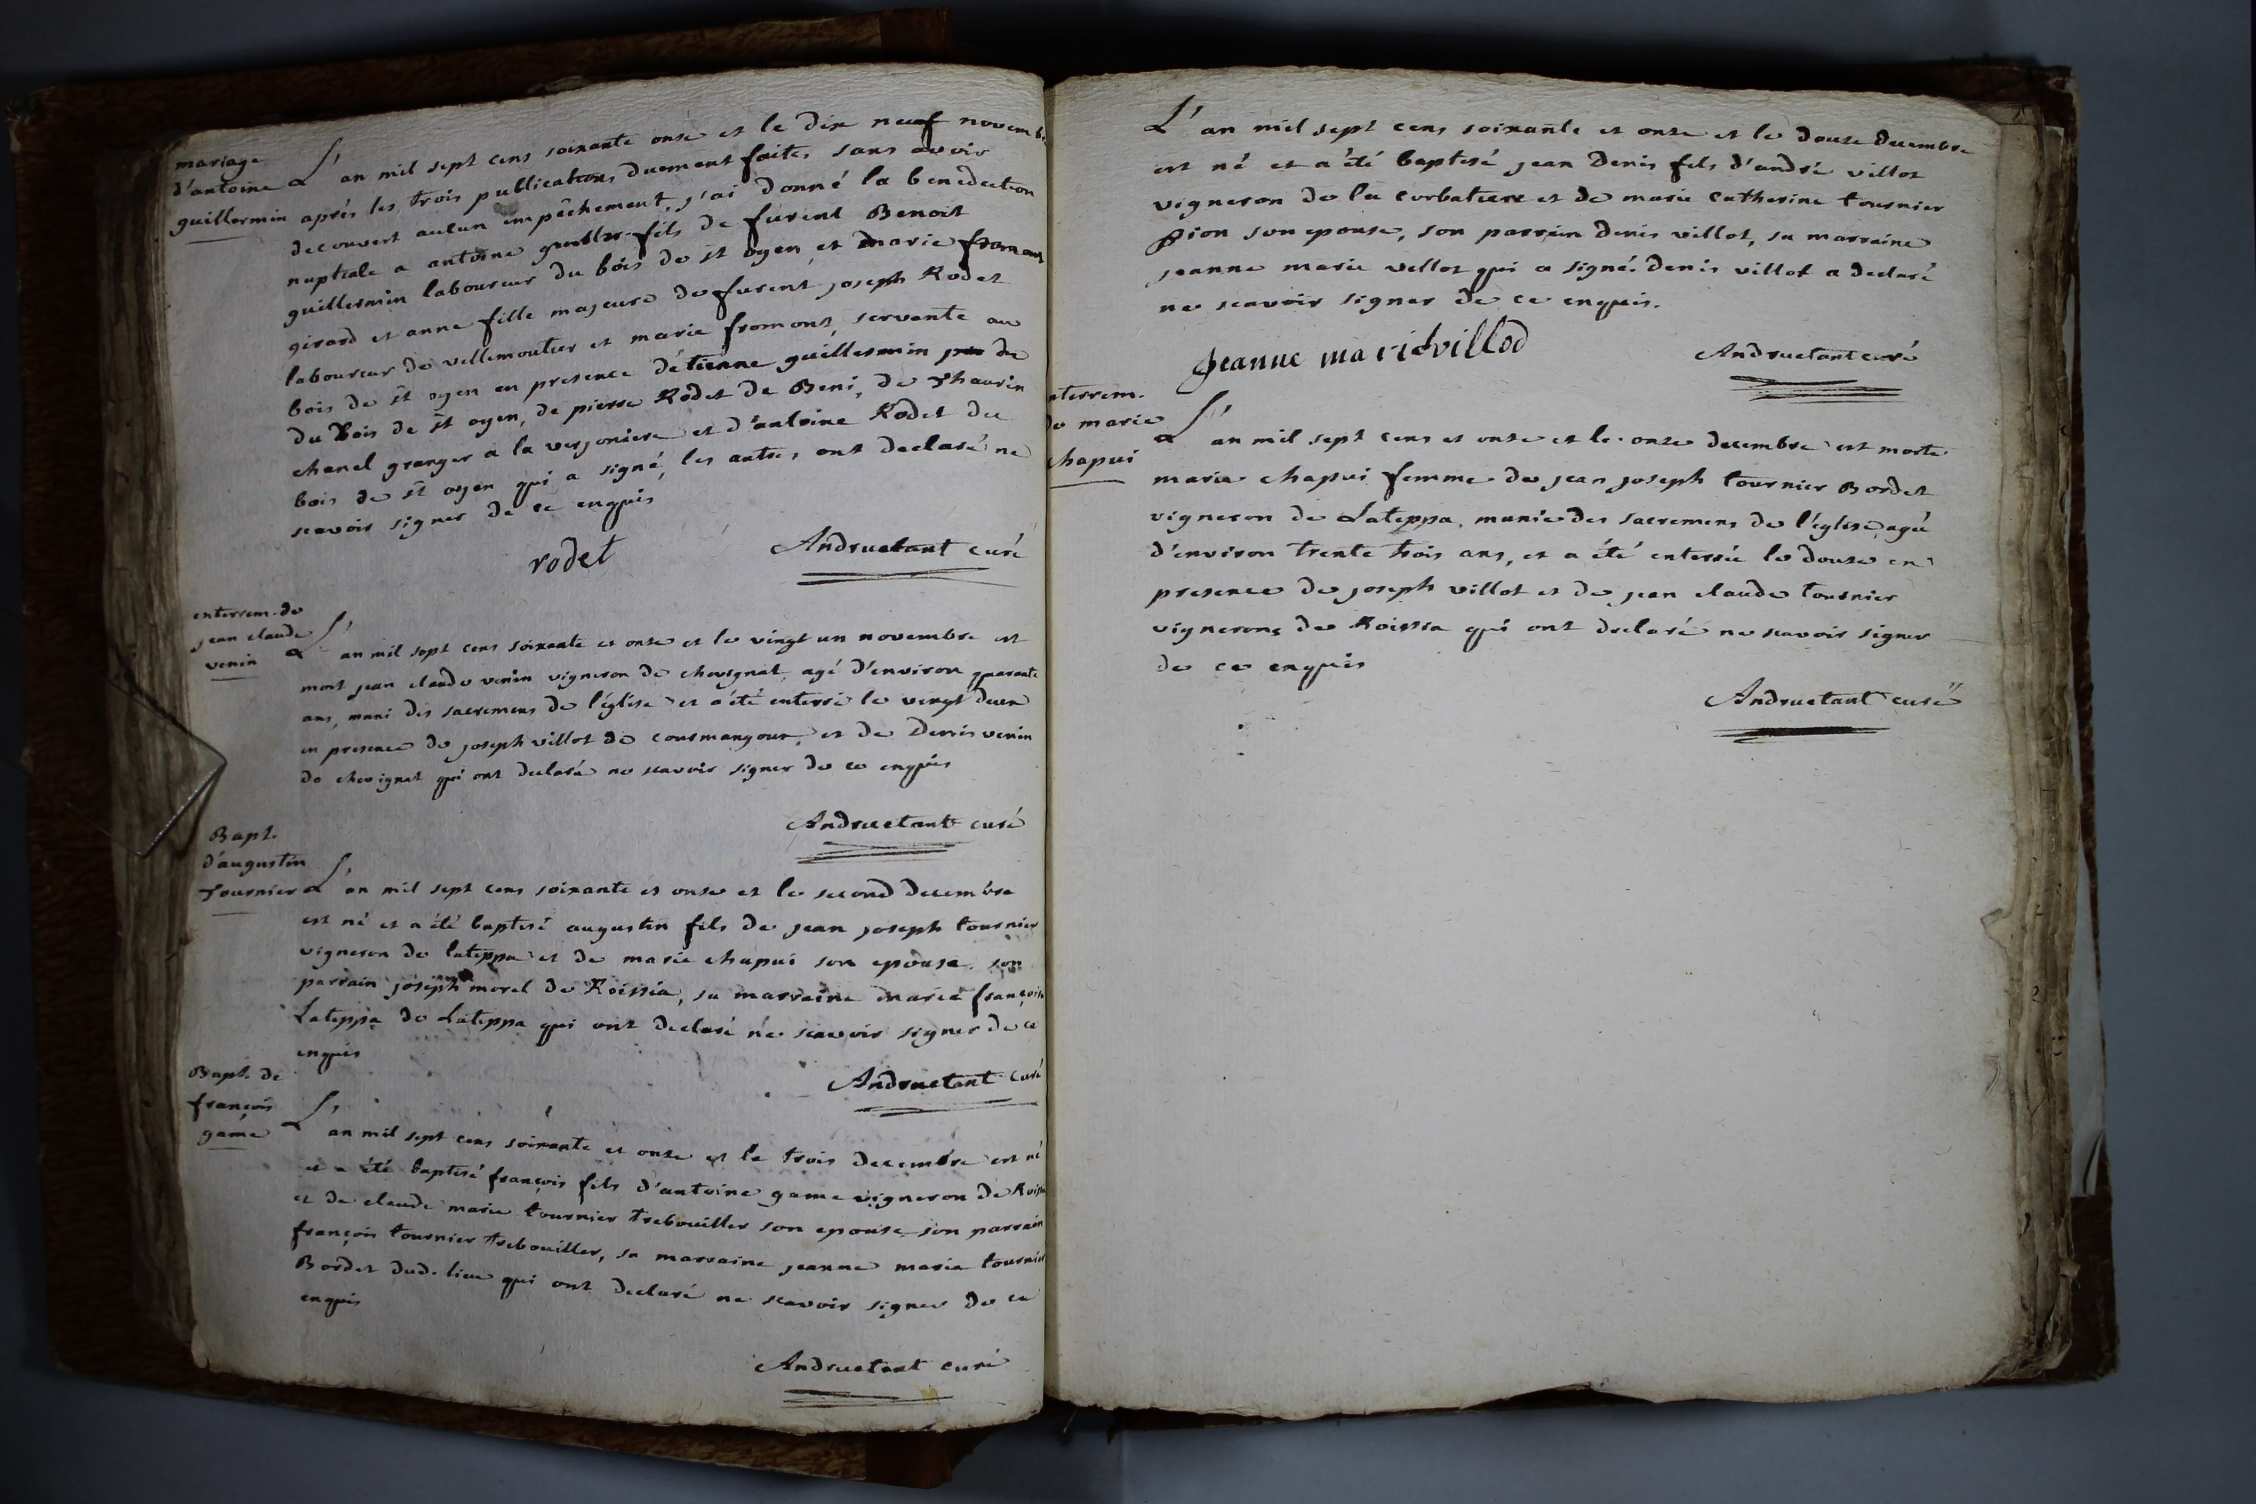 mariage
d'antoine
guillermin
L'an mil sept cens soixante onze et le dix neuf novemb
après les trois publications duement faites sans avoir
decouvert aucun impêchement, j'ai donné la benediction
nuptiale a antoine fils de furent Benoit
guillermin laboureur du bois de st oyen et marie fromont
girard et anne fille majeure de furent joseph Rodet
laboureur de villemoutier et marie fromont, servante au
bois de st oyen en presence d'étienne guillermin du
du Bois de st oyen, de pierre Rodet de Beni, de thaurin
chanel granger a la verjoniere et d'antoine Rodet du
bois de st oyen qui a signé, les autres ont declaré ne
scavoir signer de ce enquis
rodet
Andruetant curé
enterrem. de
jean claude
venin
L'an mil sept cens soixante et onze et le vingt un novembre est
mort jean claude venin vigneron de chevignat, agé d'environ quarante
ans, muni des sacremens de l'église et a été enterré le vingt deux
en presence de joseph villot de cousmangoux, et de Denis venin
de chevignat qui ont declaré ne scavoir signer de ce enquis
Andruetant curé
Bapt.
d'augustin
tournier
L'an mil sept cens soixante et onze et le second decembre
est né et a été baptisé augustin fils de jean joseph tournier
vigneron de lateppa et de marie chapui son epouse. son
parrain joseph morel de Roissia, sa marraine marie françoise
Lateppa de Lateppa qui ont declaré ne scavoir signer de ce
enquis
Andruetant curé
Bapt. de
françois
game
L'an mil sept cens soixante et onze et le trois decembre est né
et a été baptisé françois fils d'antoine game vigneron de Roissia
et de claude marie tournier trebouiller son epouse son parrain
françois tournier trebouiller, sa marraine jeanne marie tournier
Bordet dud. lieu qui ont declaré ne scavoir signer de ce
enquis
Andruetant curé
L'an mil sept cens soixante et onze et le douze decembre
est né et a été baptisé jean Denis fils d'andré villot
vigneron de la corbatiere et de marie catherine tournier
pion son epouse, son parrain Denis villot, sa marraine
jeanne marie villot qui a signé. denis villot a declaré
ne scavoir signer de ce enquis.
Jeanne marie villod
Andruetant curé
nterrem.
de marie
chapui
L'an mil sept cens et onze et le onze decembre est morte
marie chapui femme de jean joseph tournier Bordet
vigneron de Lateppa, munie des sacremens de l'église, agée
d'environ trente trois ans, et a été enterrée le douze en
presence de joseph villot et de jean claude tournier
vignerons de Roissia qui ont declaré ne scavoir signer
de ce enquis
Andruetant curé